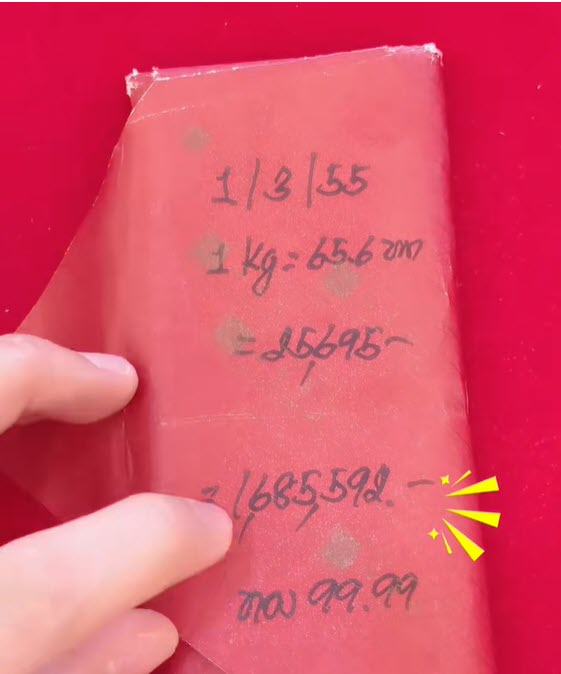 1/3/55
1 Kg = 65.6 บาท
= 25,695-
= 1,685,592.-
ทอง 99.99